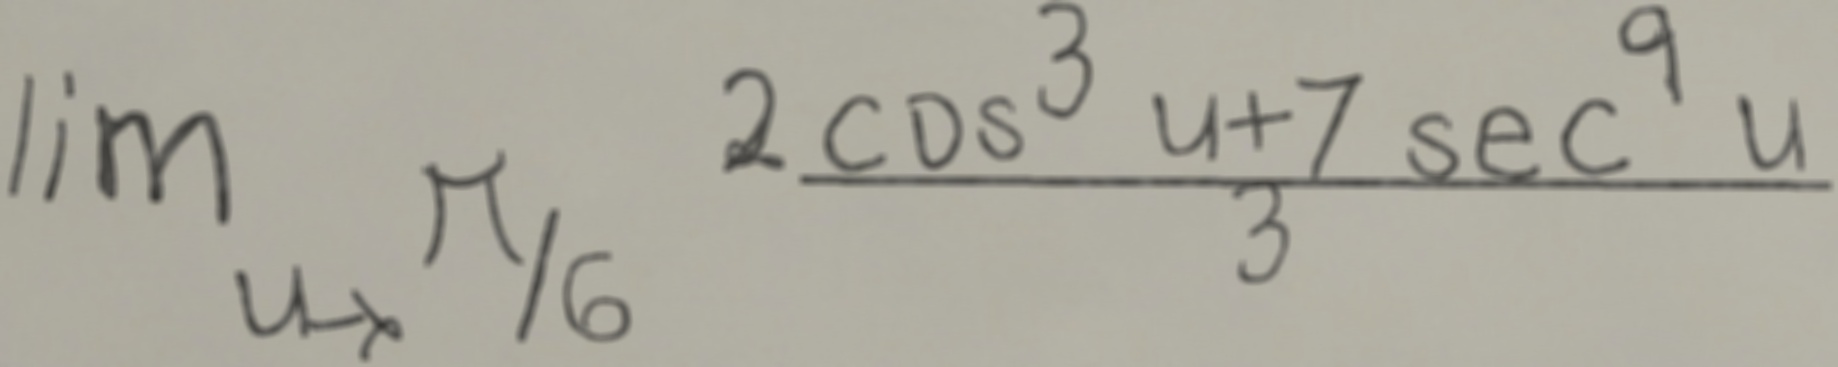 lim u→ π/6 2 cos^3 u+7 sec^9 u / 3